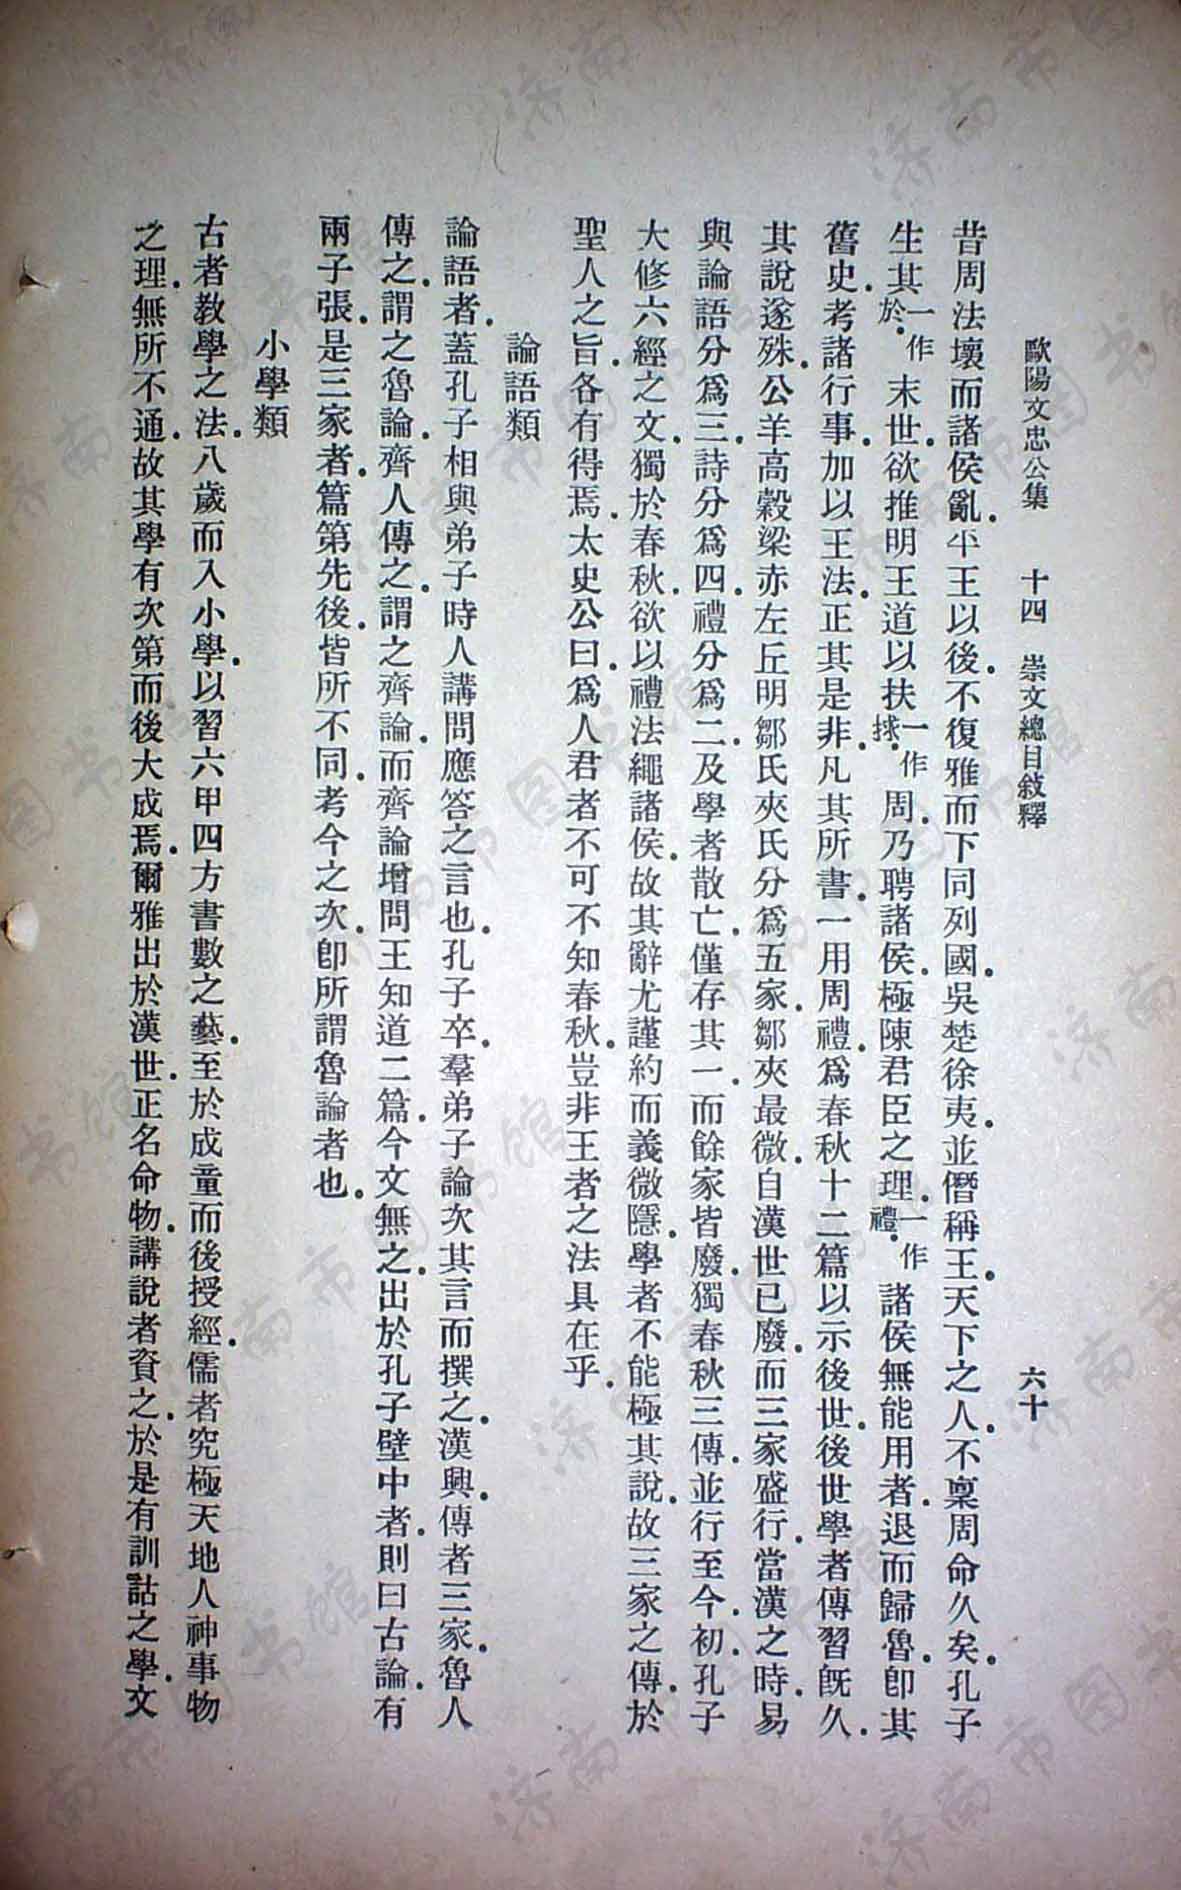 歐陽文忠公集　十四　崇文總目敍釋　六十
昔周法壞而諸侯亂.平王以後.不復雅而下同列國.吳楚徐夷.並僭稱王.天下之人.不稟周命久矣.孔子
生其一作於.末世.欲推明王道以扶一作捄.周.乃聘諸侯.極陳君臣之理.一作禮.諸侯無能用者.退而歸魯.卽其
舊史.考諸行事.加以王法.正其是非.凡其所書.一用周禮.爲春秋十二篇以示後世.後世學者傳習旣久.
其說遂殊.公羊高穀梁赤左丘明鄒氏夾氏分爲五家.鄒夾最微.自漢世已廢.而三家盛行.當漢之時.易
與論語分爲三.詩分爲四.禮分爲二.及學者散亡.僅存其一.而餘家皆廢.獨春秋三傳.並行至今.初.孔子
大修六經之文.獨於春秋.欲以禮法繩諸侯.故其辭尤謹約而義微隱.學者不能極其說.故三家之傳.於
聖人之旨.各有得焉.太史公曰.爲人君者不可不知春秋.豈非王者之法具在乎.
論語類
論語者.蓋孔子相與弟子時人講問應答之言也.孔子卒.羣弟子論次其言而撰之.漢興.傳者三家.魯人
傳之.謂之魯論.齊人傳之.謂之齊論.而齊論增問王知道二篇.今文無之.出於孔子壁中者.則曰古論.有
兩子張.是三家者.篇第先後.皆所不同.考今之次.卽所謂魯論者也.
小學類
古者教學之法.八歲而入小學.以習六甲四方書數之藝.至於成童而後授經.儒者究極天地人神事物
之理.無所不通.故其學有次第而後大成焉.爾雅出於漢世.正名命物.講說者資之.於是有訓詁之學.文
济南市图书馆